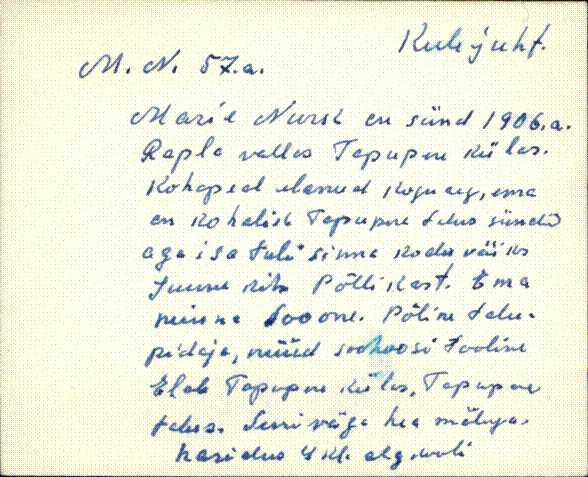 Keelejuht.
M. N. 57.a.
Marie Nursk on sünd 1906.a.
Rapla vallas Tapupere külas.
Kohapeal elanud kogu aeg, ema
on kohalik Tapupere talus sünd.
aga isa tuli sinna koduväiks
Juuru khk Põllikast. Ema
minna Sooone. Põline talu-
pidaja, nüüd sovhoosi tööline
Elab Tapupere külas, Tapupere
talus. Suur väga hea mäluga.
haridus 4 kl. alg.kooli